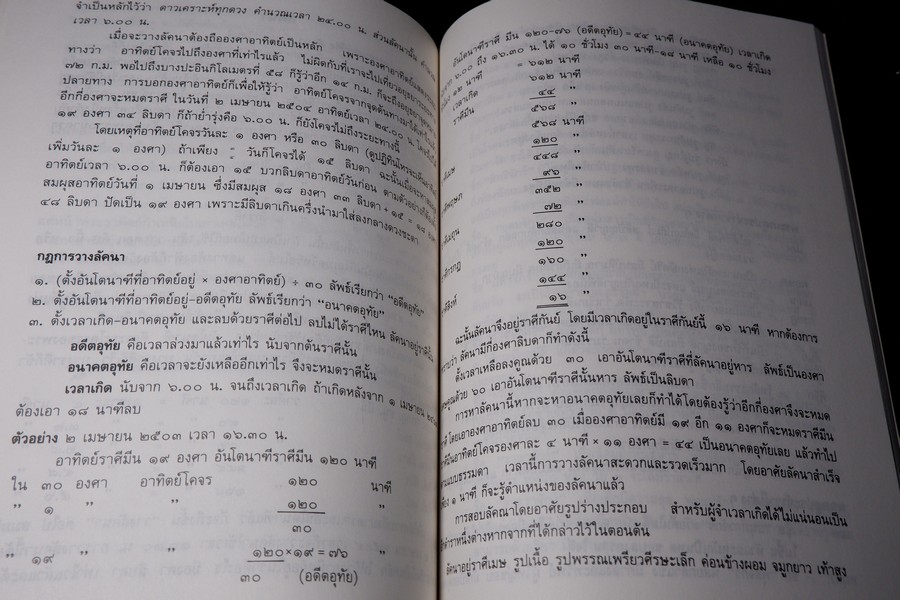 จำเป็นหลักไว้ว่า ดาวเคราะห์ทุกดวง คำนวณเวลา ๒๔.๐๐ น. ส่วนลัคนานั้น
เวลา ๖.๐๐ น.
เมื่อจะวางลัคนาต้องถือองศาอาทิตย์เป็นหลัก เพราะองศาอาทิตย์
ทางว่า อาทิตย์โคจรไปถึงองศาที่เท่าไรแล้ว ไม่ผิดกับที่เราจะไปเที่ยวอยุธยา
๗๒ ก.ม. พอไปถึงบางปะอินกิโลเมตรที่ ๕๘ ก็รู้ว่าอีก ๑๔ ก.ม. ก็จะถึงอยุธยา
ปลายทาง การบอกองศาอาทิตย์ก็เพื่อให้รู้ว่า อาทิตย์โคจรจากจุดต้นทางมาได้เท่าไร
อีกกี่องศาจะหมดราศี ในวันที่ ๒ เมษายน ๒๕๐๔ อาทิตย์เวลา ๒๔.๐๐ น.
๑๙ องศา ๓๔ ลิบดา ก็ถ้าย่ำรุ่งคือ ๖.๐๐ น. ก็ยังโคจรไม่ถึงระยะทางนี้
โดยเหตุที่อาทิตย์โคจรวันละ ๑ องศา หรือ ๓๐ ลิบดา (ดูปฏิทินโหร
เพิ่มวันละ ๑ องศา) ถ้าเพียง วันก็โคจรได้ ๑๕ ลิบดา ฉะนั้นเมื่อจะหา
อาทิตย์เวลา ๖.๐๐ น. ก็ต้องเอา ๑๕ บวกลิบดาอาทิตย์วันก่อน ตามตัวอย่าง
สมผุสอาทิตย์วันที่ ๑ เมษายน ซึ่งมีสมผุส ๑๘ องศา ๓๓ ลิบดา + ๑๕ = ๑๘
๔๘ ลิบดา ปัดเป็น ๑๙ องศา เพราะมีลิบดาเกินครึ่งนำมาใส่ลงกลางดวงชะตา
กฎการวางลัคนา
๑. (ตั้งอันโตนาฑีที่อาทิตย์อยู่ × องศาอาทิตย์) ÷ ๓๐ ลัพธ์เรียกว่า "อดีตอุทัย"
๒. ตั้งอันโตนาฑีที่อาทิตย์อยู่-อดีตอุทัย ลัพธ์เรียกว่า "อนาคตอุทัย"
๓. ตั้งเวลาเกิด-อนาคตอุทัย และลบด้วยราศีต่อไป ลบไม่ได้ราศีไหน ลัคนาอยู่ราศีนั้น
อดีตอุทัย คือเวลาล่วงมาแล้วเท่าไร นับจากต้นราศีนั้น
อนาคตอุทัย คือเวลาจะยังเหลืออีกเท่าไร จึงจะหมดราศีนั้น
เวลาเกิด นับจาก ๖.๐๐ น. จนถึงเวลาเกิด ถ้าเกิดหลังจาก ๑ เมษายน
ต้องเอา ๑๘ นาฑีลบ
ตัวอย่าง ๒ เมษายน ๒๕๐๓ เวลา ๑๖.๓๐ น.
อาทิตย์ราศีมีน ๑๙ องศา อันโตนาฑีราศีมีน ๑๒๐ นาฑี
ใน ๓๐ องศา อาทิตย์โคจร ๑๒๐ นาฑี
" ๑ " " ๑๒๐ "
๓๐
" ๑๙ " " ๑๒๐×๑๙ = ๗๖ "
๓๐ (อดีตอุทัย)
อันโตนาฑีราศี มีน ๑๒๐-๗๖ (อดีตอุทัย) = ๔๔ นาฑี (อนาคตอุทัย) เวลาเกิด
๖.๐๐ ถึง ๑๖.๓๐ น. ได้ ๑๐ ชั่วโมง ๓๐ นาฑี-๑๘ นาฑี เหลือ ๑๐ ชั่วโมง
๑๒ นาฑี = ๖๑๒ นาฑี
เวลาเกิด ๖๑๒ นาฑี
ราศีมีน ๔๔ "
๕๖๘ "
๕๖๘ นาฑี
๑๒๐ "
๔๔๘ "
๙๖ "
๓๕๒ "
๗๒ "
๒๘๐ "
๑๒๐ "
๑๖๐ "
๑๔๔ "
๑๖ "
ฉะนั้นลัคนาจึงอยู่ราศีกันย์ โดยมีเวลาเกิดอยู่ในราศีกันย์นี้ ๑๖ นาฑี หากต้องการ
ทราบว่า ลัคนามีกี่องศาลิบดาก็ทำดังนี้
ตั้งเวลาเหลือลงคูณด้วย ๓๐ เอาอันโตนาฑีราศีที่ลัคนาอยู่หาร ลัพธ์เป็นองศา
เศษคูณด้วย ๖๐ เอาอันโตนาฑีราศีนั้นหาร ลัพธ์เป็นลิบดา
การหาลัคนานี้หากจะหาอนาคตอุทัยเลยก็ทำได้โดยต้องรู้ว่าอีกกี่องศาจึงจะหมด
โดยเอาองศาอาทิตย์ลบ ๓๐ เมื่อองศาอาทิตย์มี ๑๙ อีก ๑๑ องศาก็จะหมดราศีมีน
อาทิตย์โคจรองศาละ ๔ นาฑี × ๑๑ องศา = ๔๔ เป็นอนาคตอุทัยเลย แล้วทำไป
ตามแบบธรรมดา เวลานี้การวางลัคนาสะดวกและรวดเร็วมาก โดยอาศัยลัคนาสำเร็จ
เพียง ๑ นาฑี ก็จะรู้ตำแหน่งของลัคนาแล้ว
การสอบลัคณาโดยอาศัยรูปร่างประกอบ สำหรับผู้จำเวลาเกิดได้ไม่แน่นอนเป็น
ตำราหนึ่งต่างหากจากที่ได้กล่าวไว้ในตอนต้น
ลัคนาอยู่ราศีเมษ รูปเนื้อ รูปพรรณเพรียวศีรษะเล็ก ค่อนข้างผอม จมูกยาว เท้าสูง